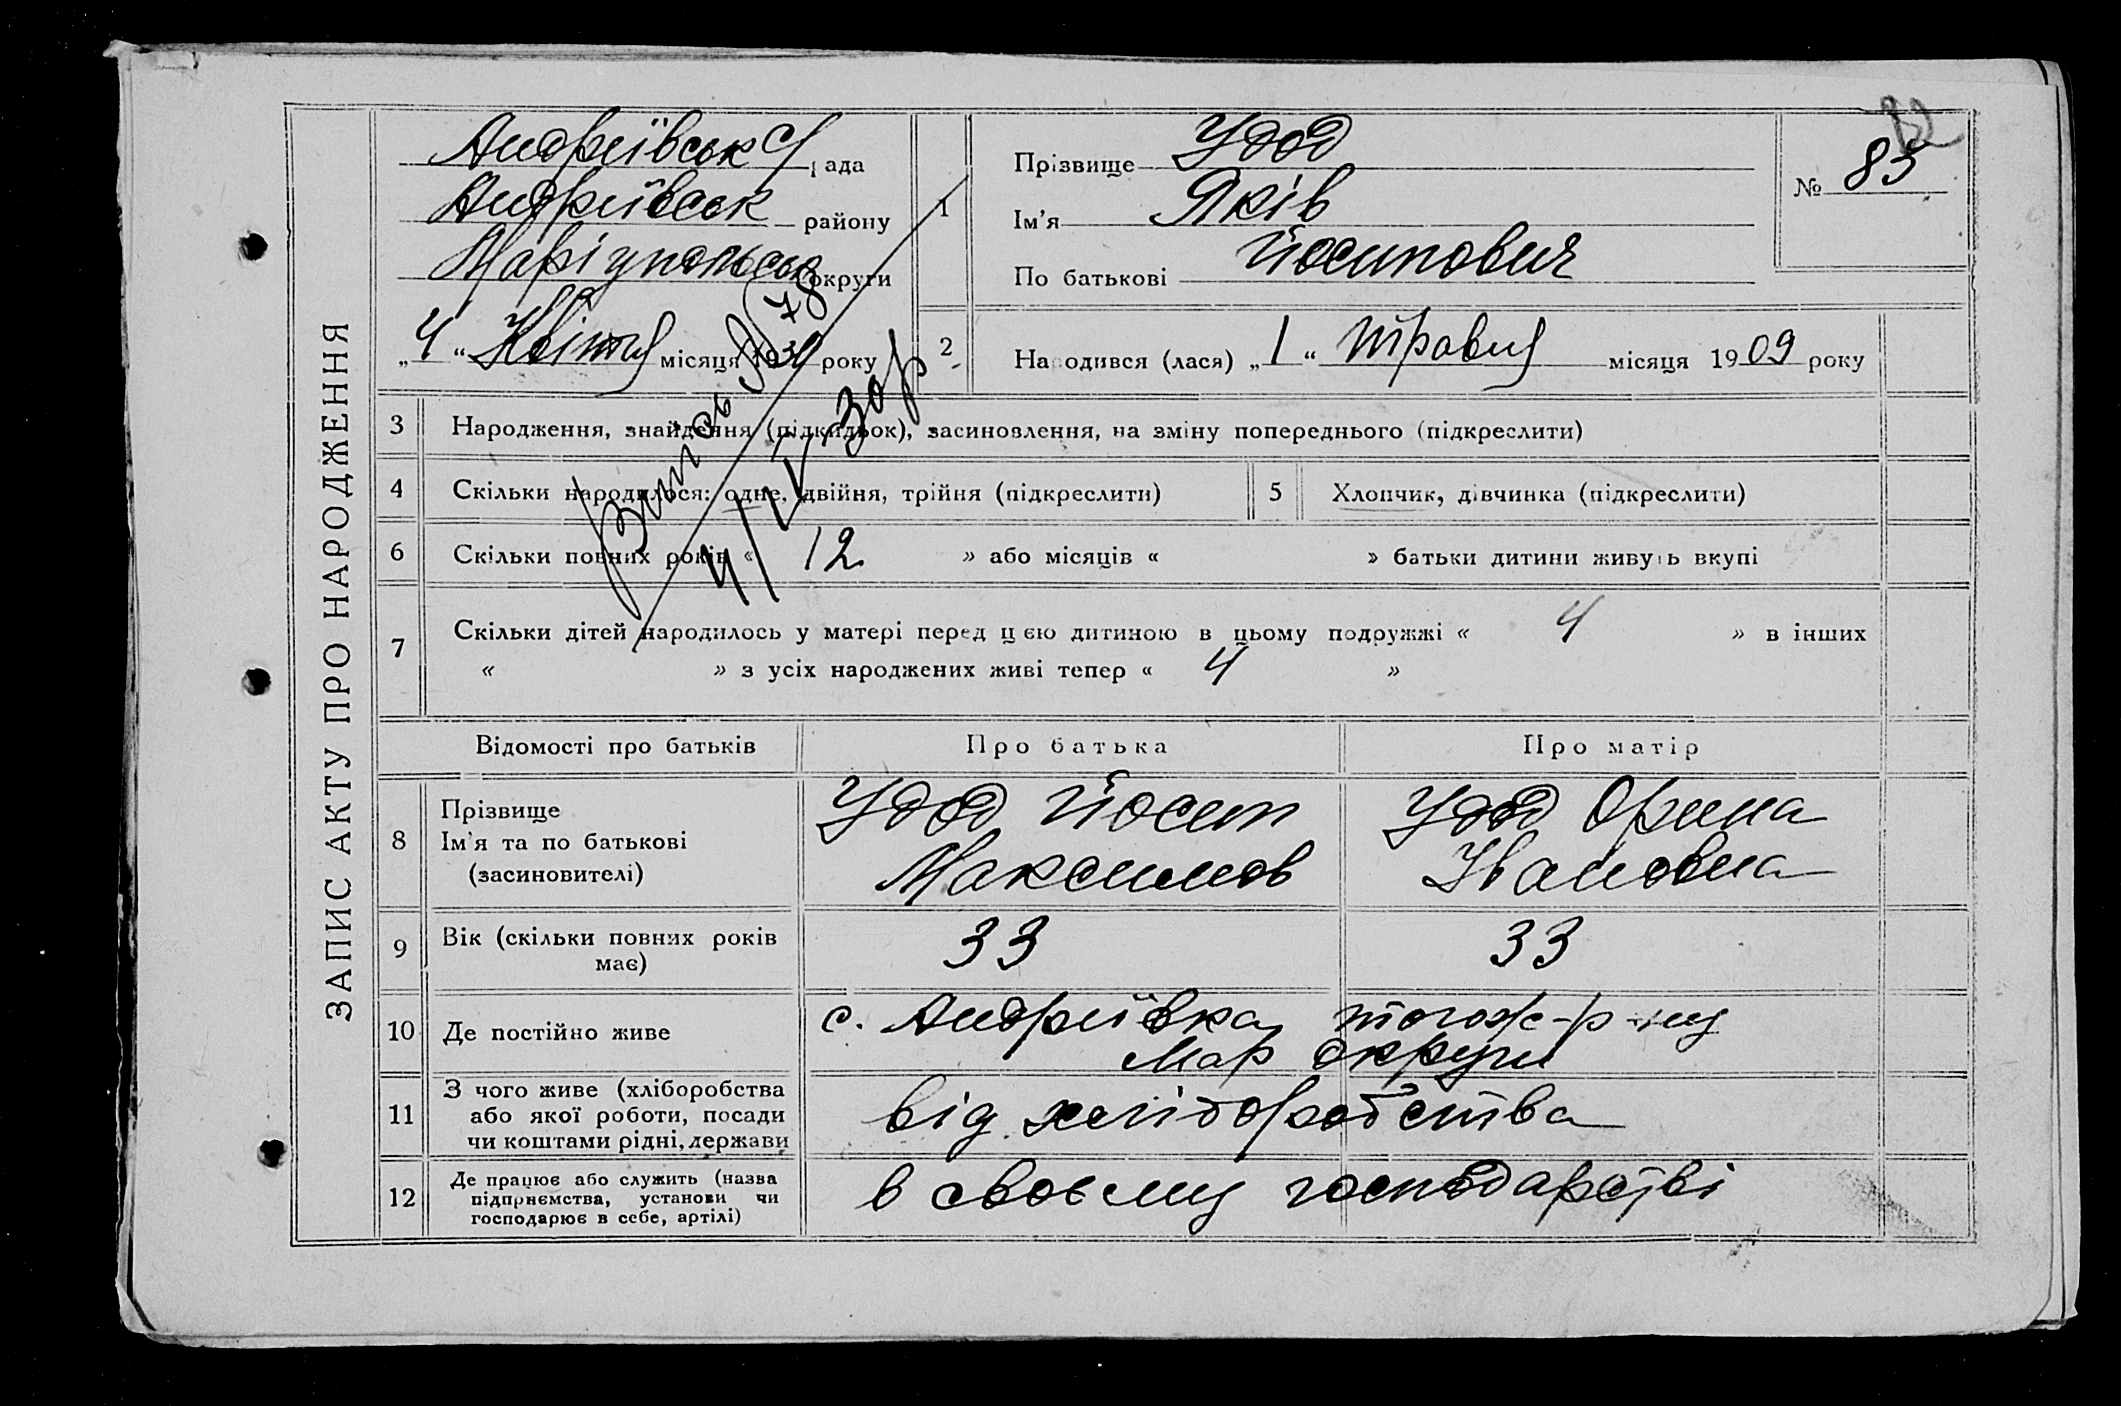 ЗАПИС АКТУ ПРО НАРОДЖЕННЯ
Андріївськ рада
Андріївськ району
Маріупольськ округи
„4“ Квітня місяця 1930 року
Витяг № 78
4/IV 30 р
1
Прізвище Удод
Ім'я Яків
По батькові Йосипович
№ 85
2 Народився (лася) „1“ травня місяця 1909 року
3 Народження, знайдення (підкидьок), засиновлення, на зміну попереднього (підкреслити)
4 Скільки народилося: одне, двійня, трійня (підкреслити) 5 Хлопчик, дівчинка (підкреслити)
6 Скільки повних років « 12 » або місяців « » батьки дитини живуть вкупі
7 Скільки дітей народилось у матері перед цією дитиною в цьому подружжі « 4 » в інших
« » з усіх народжених живі тепер « 4 »
Відомості про батьків Про батька Про матір
8 Прізвище
Ім'я та по батькові
(засиновителі)
Удод Йосип
Максимов
Удод Орина
Івановна
9 Вік (скільки повних років
має)
33 33
10 Де постійно живе с. Андріївка тогож-р-ну
Мар округи
11 З чого живе (хліборобства
або якої роботи, посади
чи коштами рідні, держави
від хліборобства
12 Де працює або служить (назва
підприємства, установи чи
господарює в себе, артілі)
в своєму господарстві